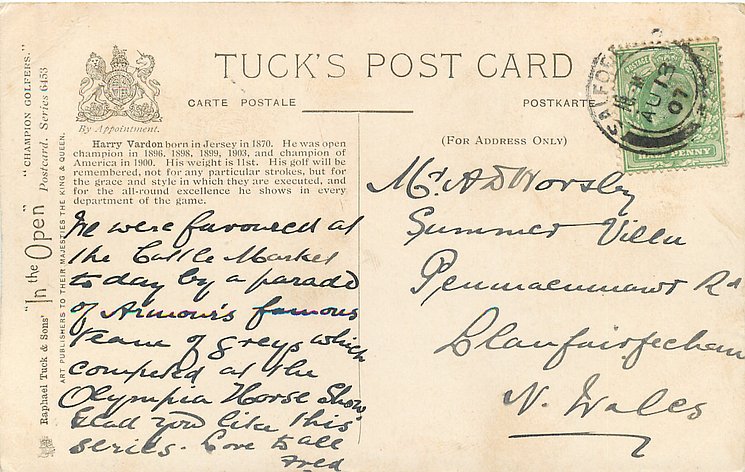 TUCK'S POST CARD
CARTE POSTALE
POSTKARTE
By Appointment.
(For Address Only)
Harry Vardon born in Jersey in 1870. He was open
champion in 1896, 1898, 1899, 1903, and champion of
America in 1900. His weight is 11st. His golf will be
remembered, not for any particular strokes, but for
the grace and style in which they are executed, and
for the all-round excellence he shows in every
department of the game.
We were favoured at
the Cattle Market
today by a parade
of Armour's famous
team of greys which
competed at the
Olympia Horse Show.
Glad you like this
series. Love to all
Fred
Mr. A D Worsley
Summer Villa
Penmaenmawr Rd
Llanfairfechan
N. Wales
Raphael Tuck & Sons' "In the Open" Postcard. Series 6453
"CHAMPION GOLFERS."
ART PUBLISHERS TO THEIR MAJESTIES THE KING & QUEEN.
SALFORD
AU 13
07
POSTAGE
HALF PENNY